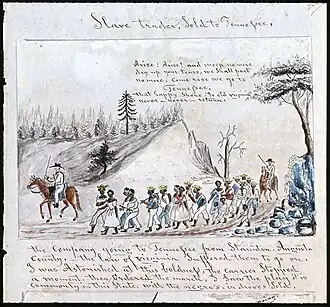 Slave trader, Sold to Tennessee,
Arise! Arise! and weep no more
dry up your tears, we shall part
no more. Come rose we go to
Tennessee,
that happy Shore. to old virginia
never — never — return.
the Company going to Tennessee from Staunton, Augusta
County, the law of Virginia Suffered them to go on.
I was Astonished at this boldness, the carrier Stopped
a moment, then Ordered the march, I saw the play it is
commonly in this State, with the negro's in droves Sold.